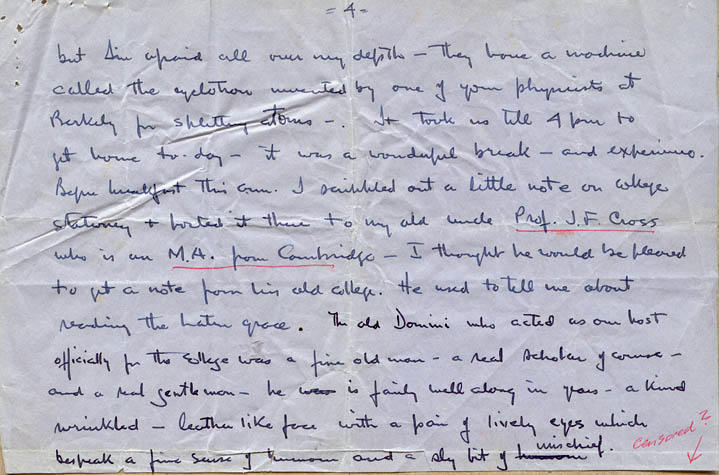 = 4 =
but I'm afraid all over my depths – they have a machine
called the cyclotron invented by one of your physicists at
Berkely for splitting atoms –. It took us till 4 pm to
get home to-day – it was a wonderful break – and experience.
Before breakfast this a.m. I scribbled out a little note on college
stationery + posted it there to my old uncle Prof. J.F. Cross
who is an M.A. from Cambridge – I thought he would be pleased
to get a note from his old college. He used to tell me about
reading the Latin grace. The old Domini who acted as our host
officially for the College was a fine old man – a real scholar of course –
and a real gentleman – he was is fairly well along in years – a kind
wrinkled – leather like face with a pair of lively eyes which
bespeak a fine sense of humour and a sly bit of humour mischief.
censored?